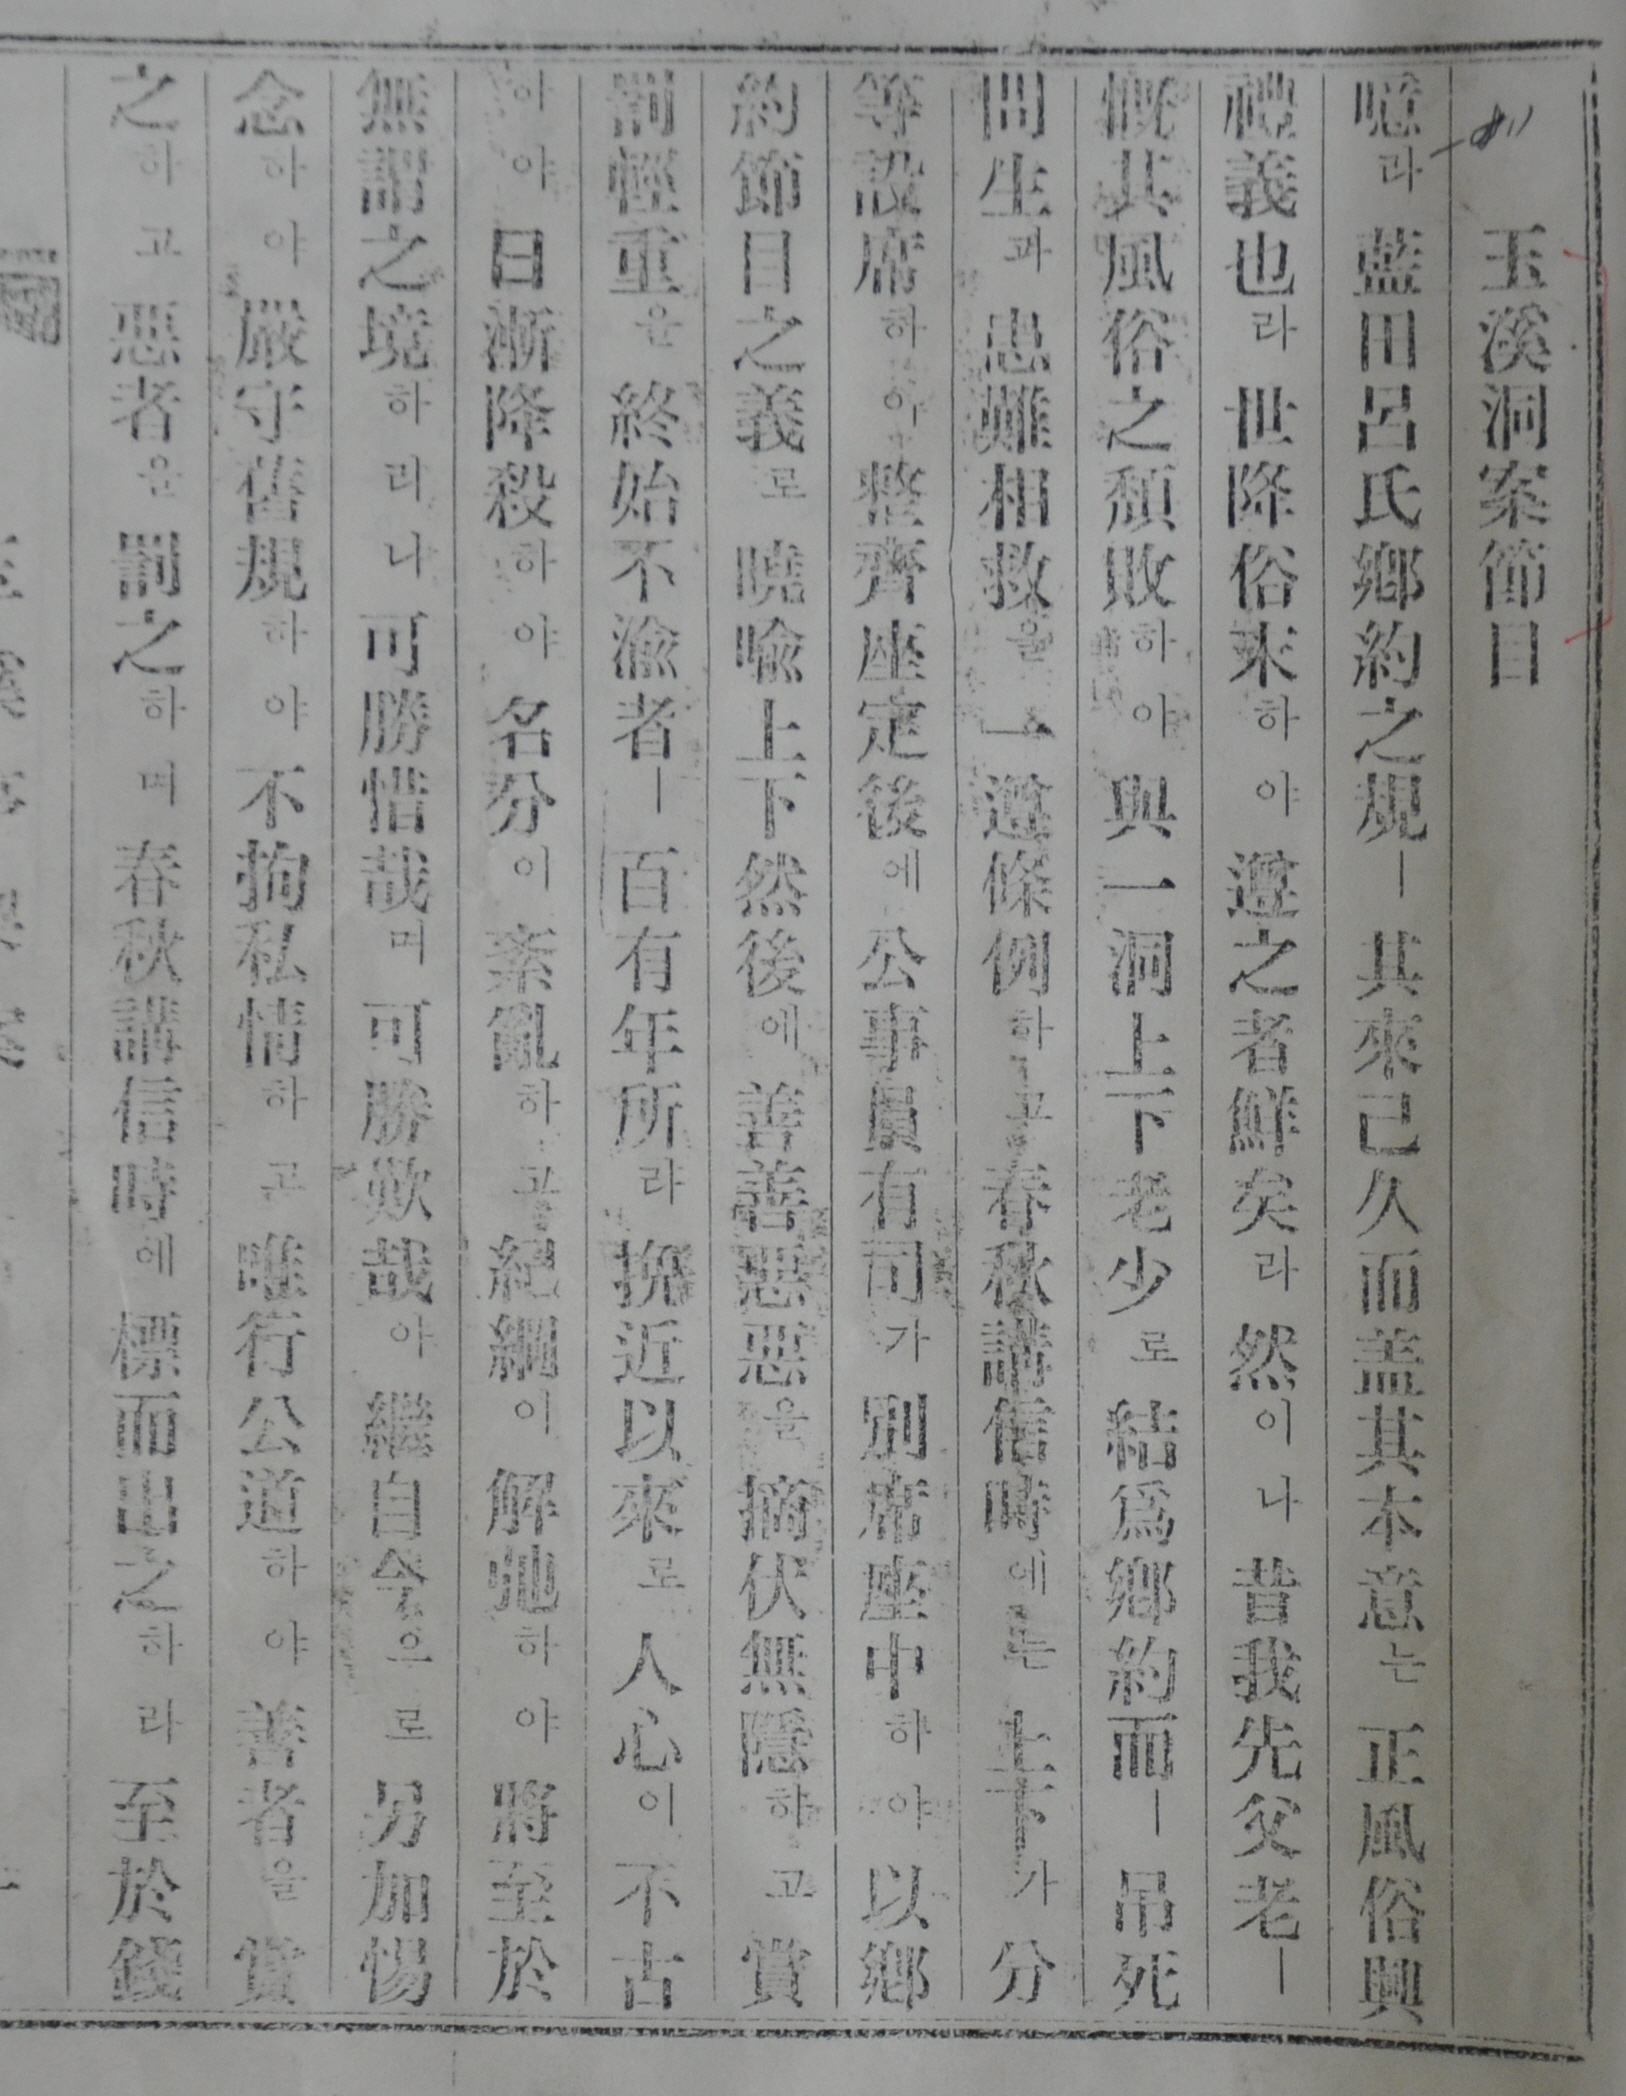 玉溪洞案節目
噫라藍田呂氏鄕約之規ㅣ共來己久而盖其本意는正風俗興
禮義也라世降俗末하야遵之者鮮矣라然이나昔我先父老ㅣ
慨其風俗之頹敗하야與一洞上下老少로結爲鄕約而ㅣ吊死
問生과患難相救을一遵條例하고春秋講信時에는上下가分
等設席하야整齊座定後에公事員有司가興席座中하야以鄕
約節目之義로曉喩上下然後에善善惡惡을摘伏無隱하고賞
罰輕重은終始不渝者ㅣ百有年所라挽近以來로人心이不古
하야日漸降殺하야名分이紊亂하고紀綱이解弛하야將至於
無謂之境하리나可勝惜哉며可勝歎哉아繼自今으로另加惕
念하야嚴守舊規하야不拘私情하고恪行公道하야善者을賞
之하고惡者을罰之하며春秋講信時에應而書之하라至於錢